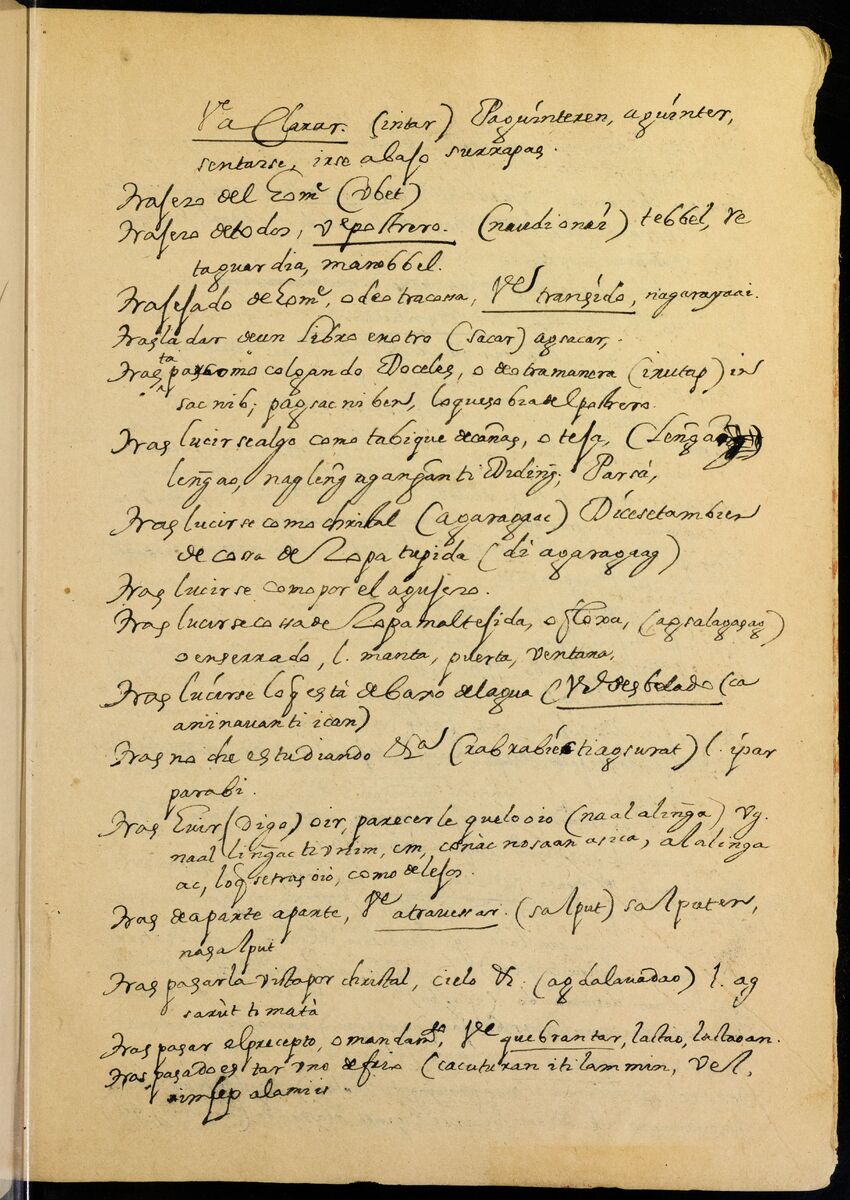 Vᵉ a Clarar. (intar) Paguínteren, aguínter,
sentarse, irse abaJo surrapas.
trasero del homᵉ (vbet)
trasero detodos, vᵉ postrero. (naudi onéi) tebbel, ve
taguardia, manobbel.
trasesado de homᵉ, o deotracossa, Vᵉ transido, nagarayaai.
trasladar deun libro enotro (sacar) agsacar,
tras pas como colgando Doceles, o deotramanera (inutap) in
sacnib; pagsacniben, loquesobradelpostrero.
tras lucirsealgo como tabique decañas, o teJa, (
lenḡao, naglenḡagangan ti Didinḡ; Parsá,
tras lucirse como christal (agaragaac) Dícesetambien
de cossa de Ropa tupida (di agaragaag)
tras lucirse como por el agujero.
tras lucirse cossa de Ropa maltejida, o floxa, (agsalagasag)
o enserrado, l. manta, puerta, ventana,
tras lucirse loq̄ está debaxo delagua (Vᵉ desbelado (ca
aninauanti ican)
trasnoche estudiando &ᵃ (rabrabíictiagsurat) l. ípar
parabi.
tras (digo) oir, parecerle quelooio (naalalinḡa) vg.
naal linḡac ti vním, cm, conác nosaan a sica, alalinga
ac, loq̄ setrasoió, como delejos.
tras deaparte aparte, Vᵉ atravessar. (salput) salputen,
nasalput
tras pasarla vista por christal, cielo &ᵃ. (agdalauadao) l. ag
sarùt ti matà
tras pasar elprecepto, o mandamᵗᵒ, Vᵉ quebrantar, lastao, lastaoan.
tras pasado estar vno de frio (cacuteran iti lammin, Vel,
simsep alamiis